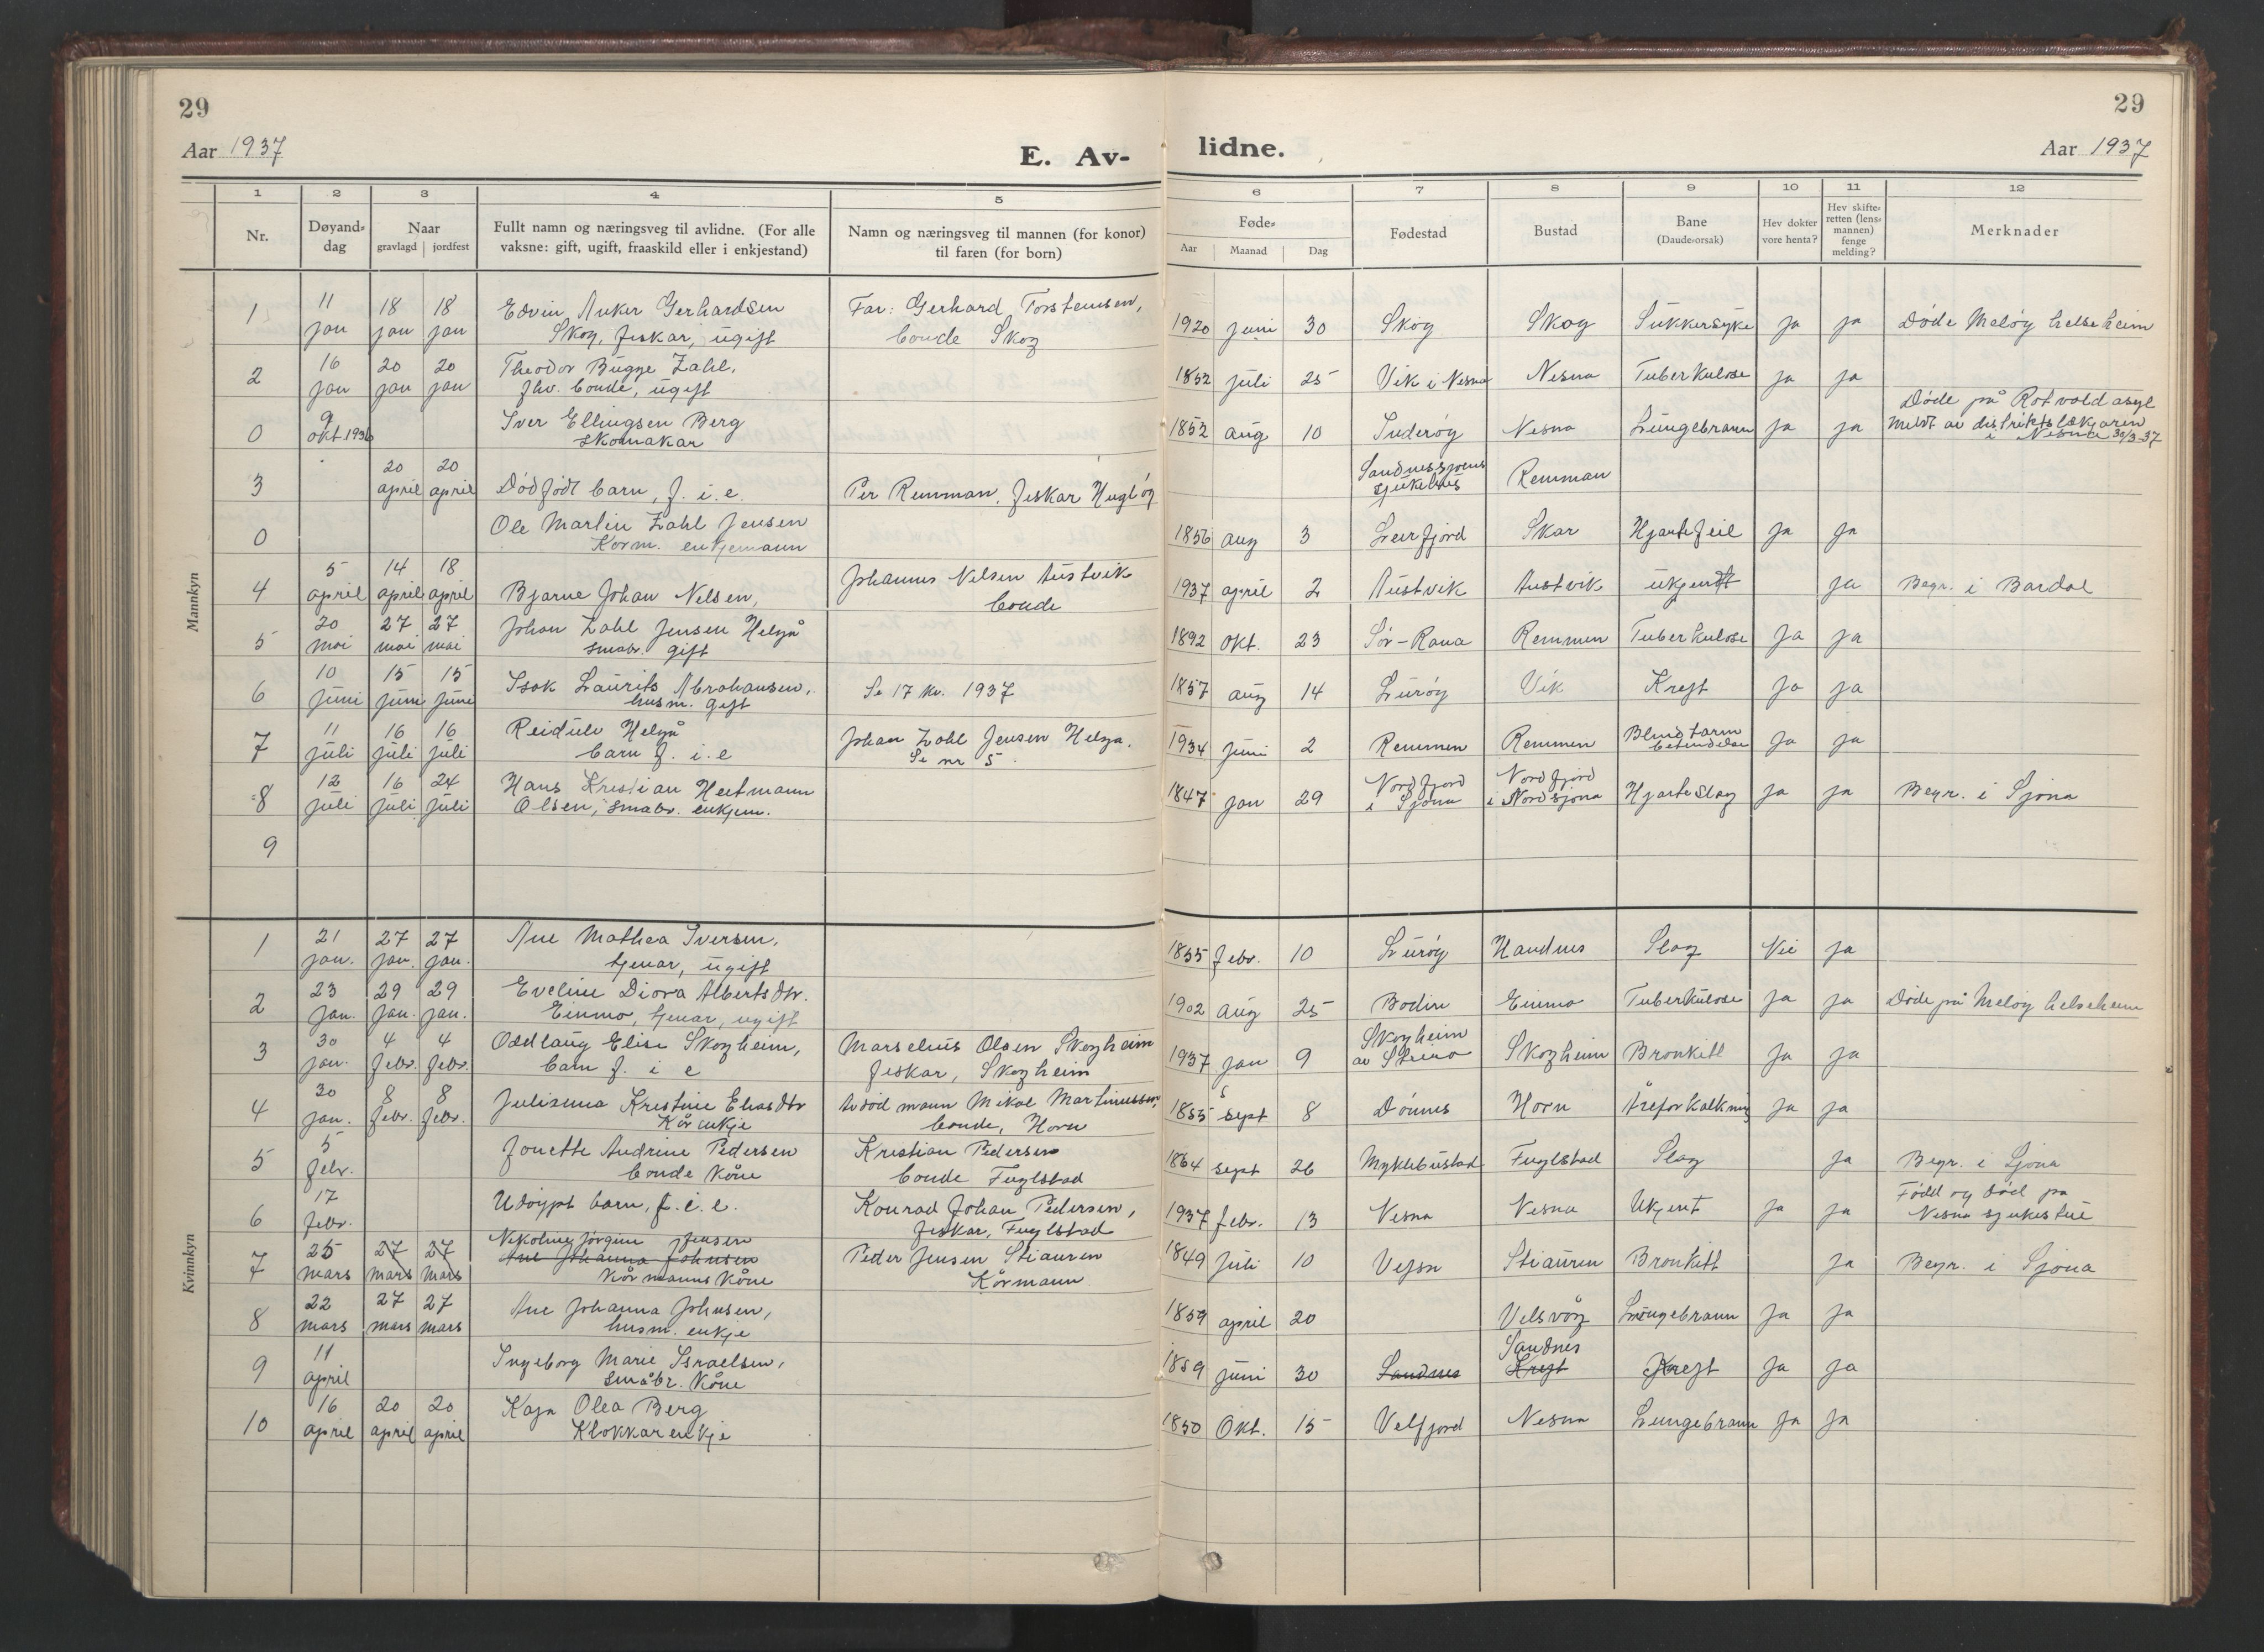 29
29
Aar 1937
E. Av-
lidne.
Aar 1937
1 2 3 4 5 6 7 8 9 10 11 12
Nr.
Døyand-
dag
Naar
gravlagd jordfest
Fullt namn og næringsveg til avlidne. (For alle
vaksne: gift, ugift, fraaskild eller i enkjestand)
Namn og næringsveg til mannen (for konor)
til faren (for born)
Føde-
Aar Maanad Dag
Fødestad
Bustad
Bane
(Daude-orsak)
Hev dokter
vore henta?
Hev skifte-
retten (lens-
mannen)
fenge
melding?
Merknader
Mannkyn
1 11 18 18 Edvin Anker Gerhardsen Far: Gerhard Torstensen,
jan jan jan Skog, fiskar, ugift bonde Skog
1920 juni 30 Skog Skog Sukkersyke ja ja Døde Meløy helseheim
2 16 20 20 Theodor Bugge Zahl,
jan jan jan fhv. bonde, ugift
1852 juli 25 Vik i Nesna Nesna Tuberkulose ja ja
0 9 Iver Ellingsen Berg
okt. 1936 skomakar
1852 aug 10 Nesna Lungebrann ja ja Døde på Rotvold asyl
Meldt av distriktslækjaren
i Nesna 30/3-37
3 20 20
april april Dødfødt barn, f. i. e. Per Remman, fiskar Hugløy
Sandnessjøens
sjukehus Remman
0 Ole Martin Zahl Jensen
Korm. enkjemann
1856 aug 3 Leirfjord Skar Hjartefeil Ja Ja
4 5 14 18 Johannes Nilsen Austvik
april april april Bjarne Johan Nilsen, bonde
1937 april 2 Austvik Austvik ukjendt ja Begr. i Bardal
5 20 27 27 Johan Zahl Jensen Helgå
mai mai mai småbr. gift
1892 okt. 23 Sør-Rana Remmen Tuberkulose Ja ja
6 10 15 15 Isak Laurits Abrahansen,
juni juni juni husm. gift Se 17 kv. 1937
1857 aug 14 Lurøy Vik Kreft ja ja
7 11 16 16 Reidulv Helgå Johan Zahl Jensen Helga.
juli juli juli barn f. i. e Se nr 5.
1934 juni 2 Remmen Remmen Blindtarm
betendelse ja ja
8 12 16 24 Hans Kristian Heitmann
juli juli juli Olsen, småbr. enkjem.
1847 jan 29 Nordfjord
i Sjona Nordfjord
i Nordsjona Hjarteslag ja ja Begr. i Sjona
9
Kvinnkyn
1 21 27 27 Ane Mathea Iversen,
jan. jan. jan. tjenar, ugift
1855 febr. 10 Lurøy Handnes Slag Nei ja
2 23 29 29 Eveline Diora Albertsdtr.
jan. jan. jan. Einmo, tjenar, ugift
1902 aug 25 Bodin Einmo Tuberkulose ja ja Døde på Meløy helseheim
3 30 4 4 Oddlaug Elise Skogheim, Marselius Olsen Skogheim
jan. febr. febr. barn f. i e fiskar, Skogheim
1937 jan 9 Skogheim
av Skogheim Bronkitt Ja Ja
4 30 8 8 Julianna Kristine Eliasdtr Avdød mann Mikal Martinussen
jan. febr. febr. Kårenkje bonde, Horn
1855 sept 8 Dønnes Horn Åreforkalkning ja ja
5 5 Jonette Andrine Pedersen Kristian Pedersen
febr. bonde kone bonde Fuglstad
1864 sept 26 Myklebustad Fuglstad Slag ja Begr. i Sjona
6 17 Udøypt barn, f. i. e. Konrad Johan Pedersen,
febr. fiskar, Fuglstad
1937 febr. 13 Nesna Nesna Ukjent ja ja Fødd og død på
Nesna sjukestue
7 25 27 27 Nikoline Jørgine Jensen
Ane Johanna Johnsen Peder Jensen Stiauren
mars mars mars kårmanns kone Kårmann
1849 juli 10 Vefsn Stiauren Bronkitt ja Begr. i Sjona
8 22 27 27 Ane Johanna Johnsen,
mars mars mars husm. enkje
1859 april 20 Velsvåg Lungebrann ja ja
9 11 Ingeborg Marie Israelsen,
april småbr. kone
1859 juni 30 Sandnes Sandnes
Kreft Kreft ja ja
10 16 20 20 Kaja Olea Berg
april april april Klokkarenkje
1850 Okt. 15 Velfjord Nesna Lungebrann ja ja